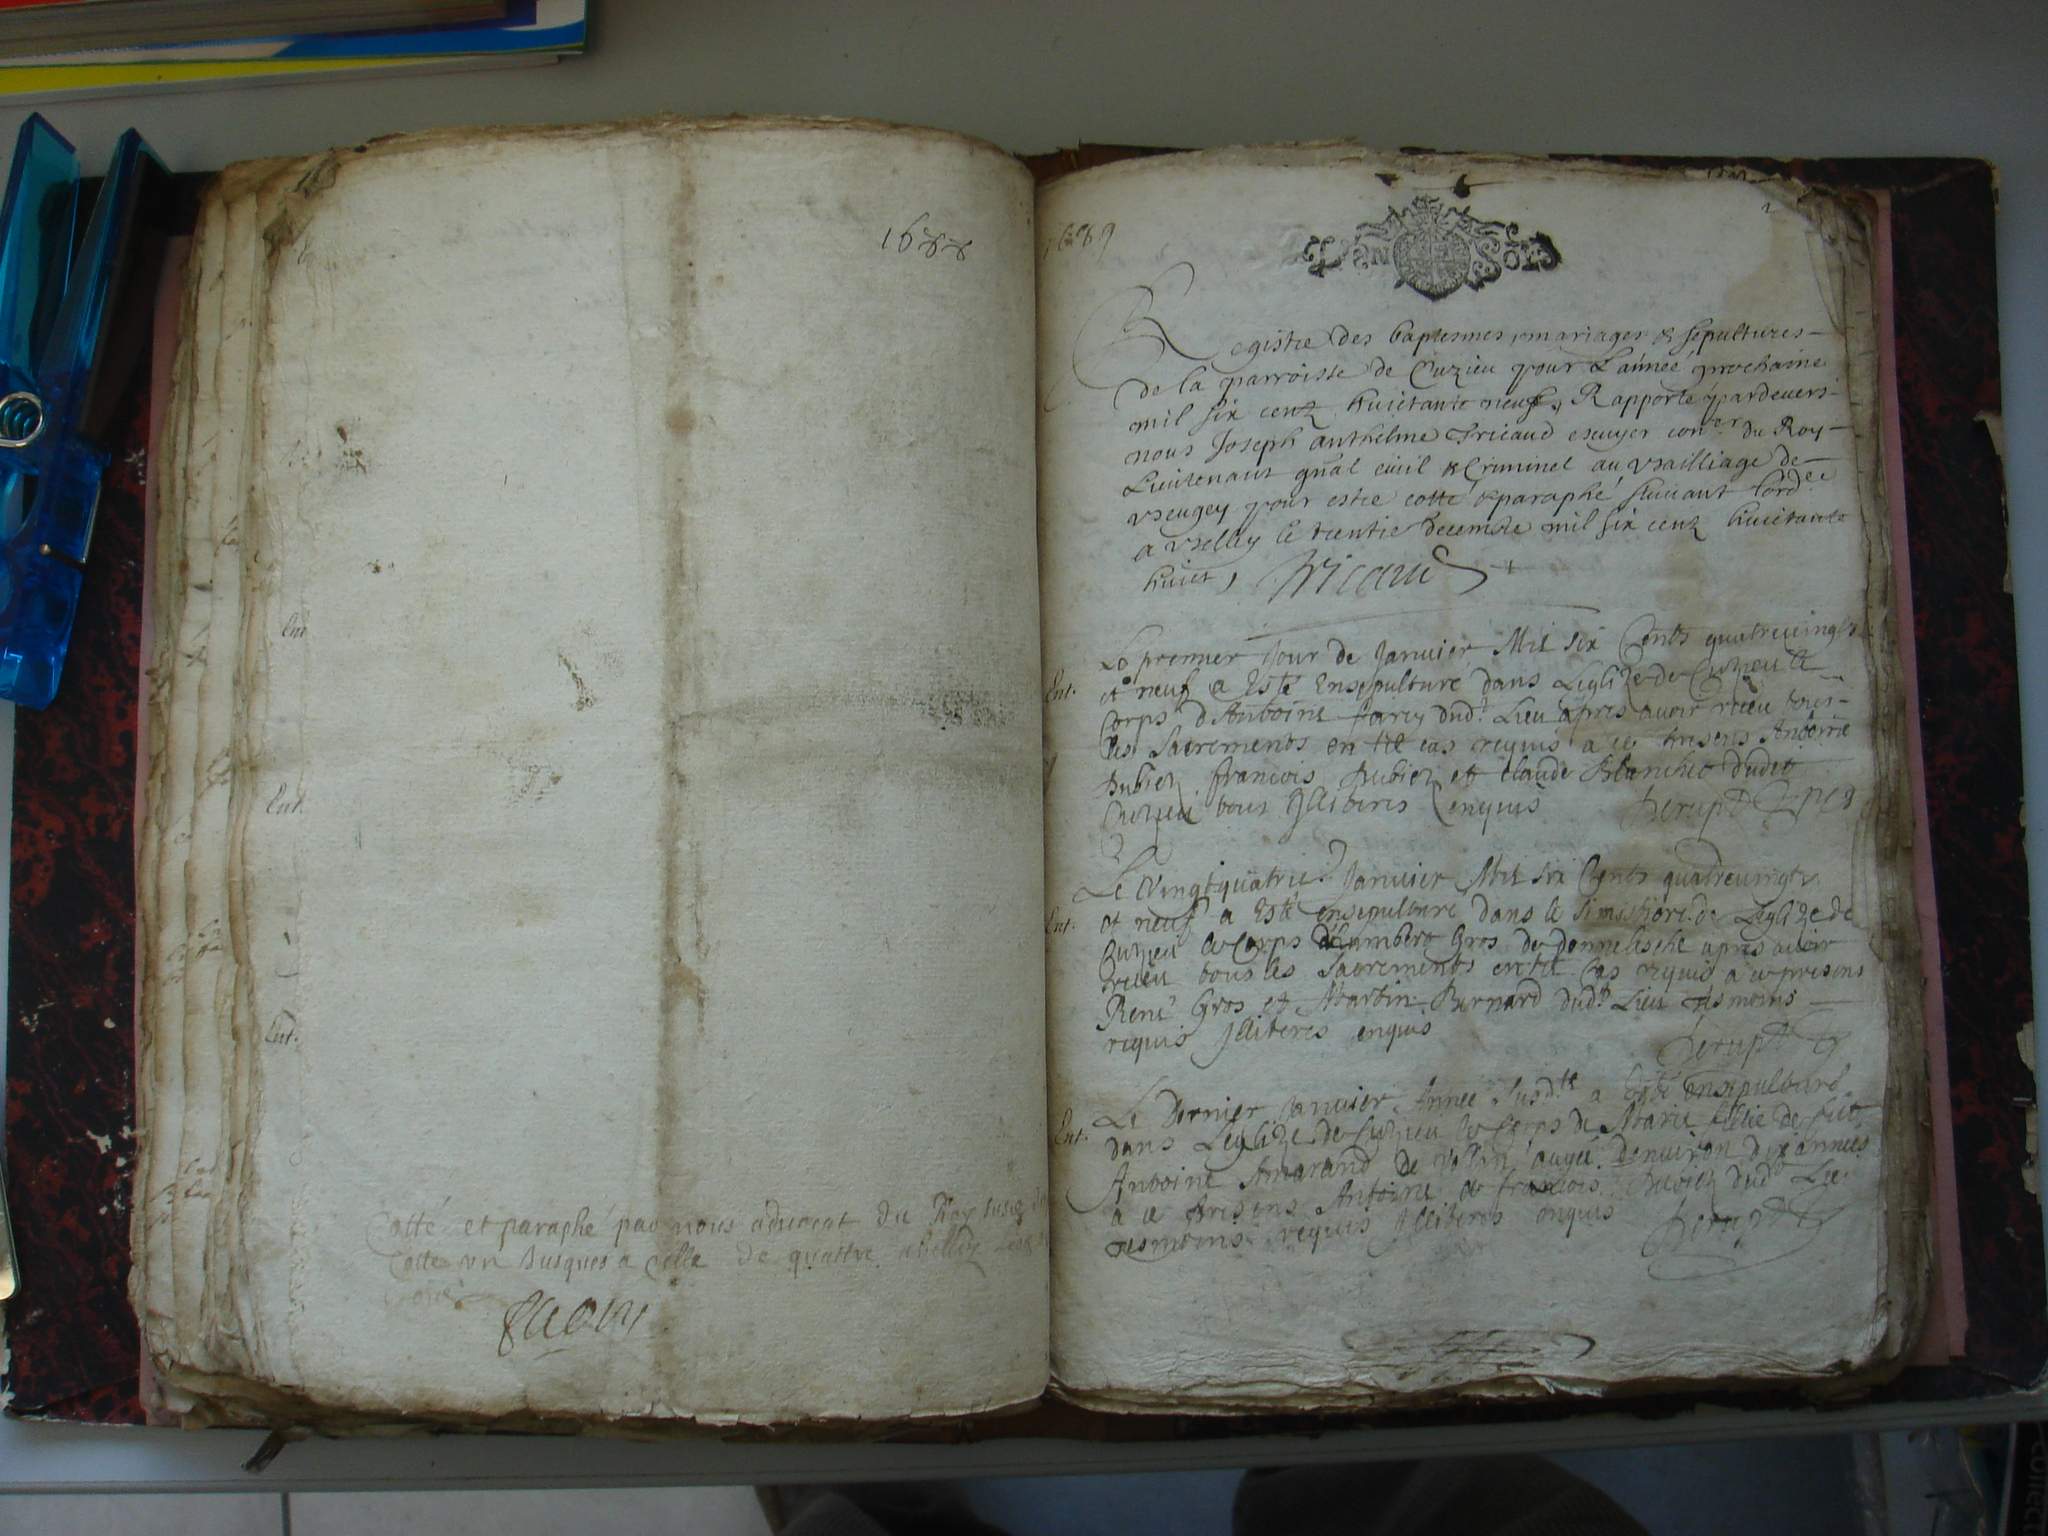 1688
Ent
Ent.
Ent.
Cotté et paraphé par nous aduocat du Roy
Cotte un Jusques a Celle de quattre
1689
2
GEN SOLS
Registre des baptesmes, mariages & sepultures
de la parroisse de Cuzieu pour L'année prochaine
mil six cenz huictante neuf, Rapporté pardeuers
nous Joseph anthelme Tricaud escuyer con.er du Roy
Lieutenant gnal ciuil & Criminel au Bailliage de
Beugey pour estre cotté & paraphé suiuant lord.ce
a Belley le trentie decembre mil six cenz huictante
huict, Tricaud
Le premier Jour de Januier Mil six Cents quatreuingts
Ent. et neuf a Esté Ensepulturé dans Leglize de Cuzieu le
Corps d'Anthoine dud.t Lieu apres auoir receu tous
les Sacrements en tel cas requis a ce presens Antoine
Dubiez françois Dubiez et claude Blanchet dudit
Cuzieu tous Illiteres enquis
Le Vingtquatrie. Januier Mil six Cents quatreuingts
Ent. et neuf a Esté ensepulturé dans le Simistiere de Leglize de
Cuzieu le Corps d'humbert Gros de apres auoir
receu tous les Sacrements en tel Cas requis a ce presens
René Gros et Martin Bernard dud.t Lieu tesmoins
requis Illiteres enquis
Le Dernier Januier Année Susd.te a Esté ensepulturé
Ent. dans Leglize de Cuzieu le Corps de Marie fillie de
Antoine Amarand de augée denuiron dix années
a ce presens Antoine & francois Dubiez dud.t Lieu
tesmoins requis Illiteres enquis